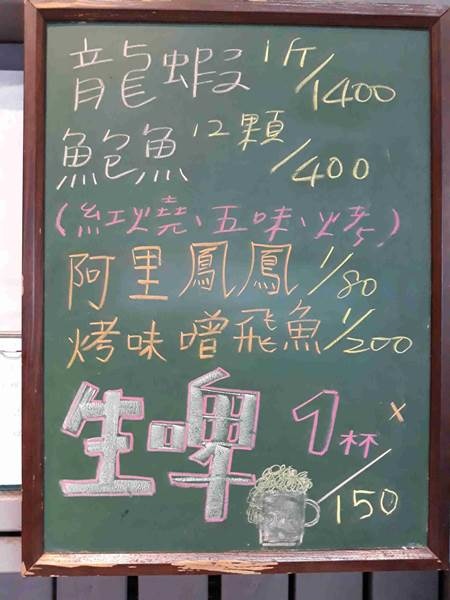 龍蝦 1斤/1400
鮑魚 12顆/400
(紅燒、五味、火烤)
阿里鳳鳳 1/80
烤味噌飛魚 1/200
生啤 1杯/150
x